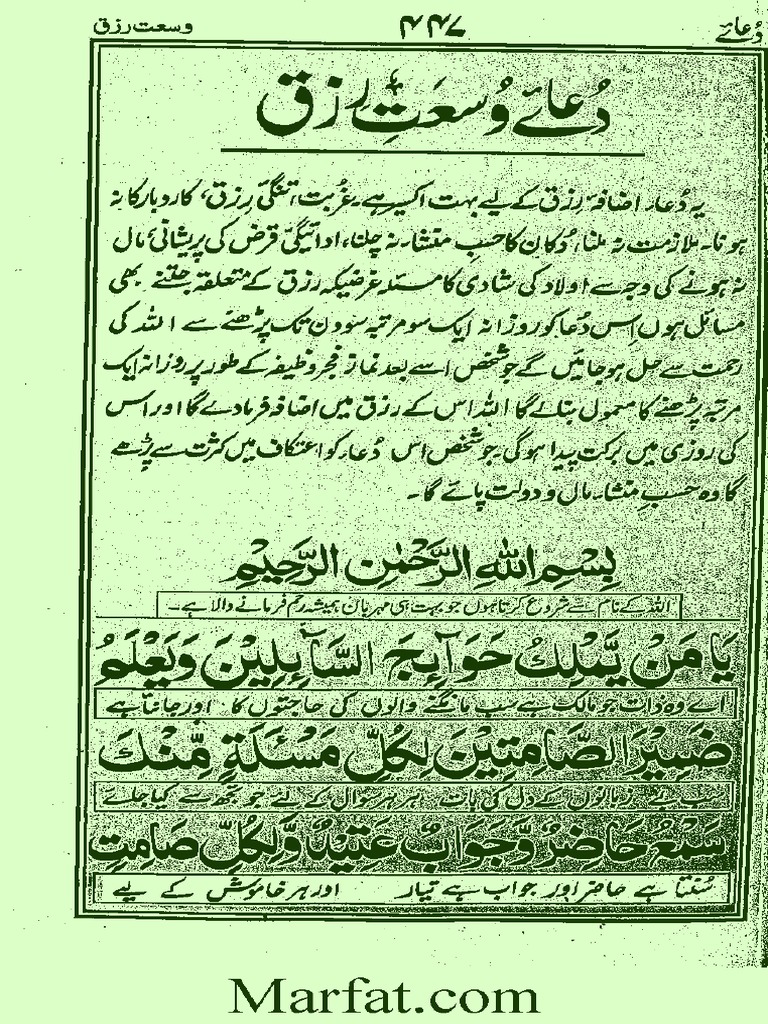 دُعائے ۴۴۷ وسعت رزق
دُعائے وُسعَتِ رزق
یہ دُعاء اضافۂ رزق کے لیے بہت اکسیر ہے۔ غربت، تنگیٔ رزق، کاروبار کا نہ
ہونا۔ ملازمت نہ ملنا، دُکان کا حسبِ منشاء نہ چلنا، ادائیگیٔ قرض کی پریشانی مال
نہ ہونے کی وجہ سے اولاد کی شادی کا مسئلہ غرضیکہ رزق کے متعلقہ جتنے بھی
مسائل ہوں اِس دُعا کو روزانہ ایک سو مرتبہ سو دن تک پڑھنے سے اللہ کی
رحمت سے حل ہو جائیں گے جو شخص اسے بعد نماز فجر وظیفہ کے طور پر روزانہ ایک
مرتبہ پڑھنے کا معمول بنالے گا اللہ اس کے رزق میں اضافہ فرما دے گا اور اس
کی روزی میں برکت پیدا ہو گی۔ جو شخص اس دُعاء کو اعتکاف میں کثرت سے پڑھے
گا وہ حسبِ منشاء مال و دولت پائے گا۔
بِسْمِ اللهِ الرَّحْمٰنِ الرَّحِيْمِ
اللہ کے نام سے شروع کرتا ہوں جو بہت ہی مہربان ہمیشہ رحم فرمانے والا ہے۔
يَا مَنْ يَّمْلِكُ حَوَآئِجَ السَّآئِلِيْنَ وَيَعْلَمُ
اے وہ ذات جو مالک ہے سب مانگنے والوں کی حاجتوں کا اور جانتا ہے
ضَمِيْرَ الصَّامِتِيْنَ لِكُلِّ مَسْئَلَةٍ مِّنْكَ
سب بے زبانوں کے دل کی بات ہر ہر سوال کے لئے جو تجھ سے کیا جائے
سَمْعٌ حَاضِرٌ وَّجَوَابٌ عَتِيْدٌ وَّلِكُلِّ صَامِتٍ
سُننا ہے حاضر اور جواب ہے تیار اور ہر خاموش کے لیے
Marfat.com